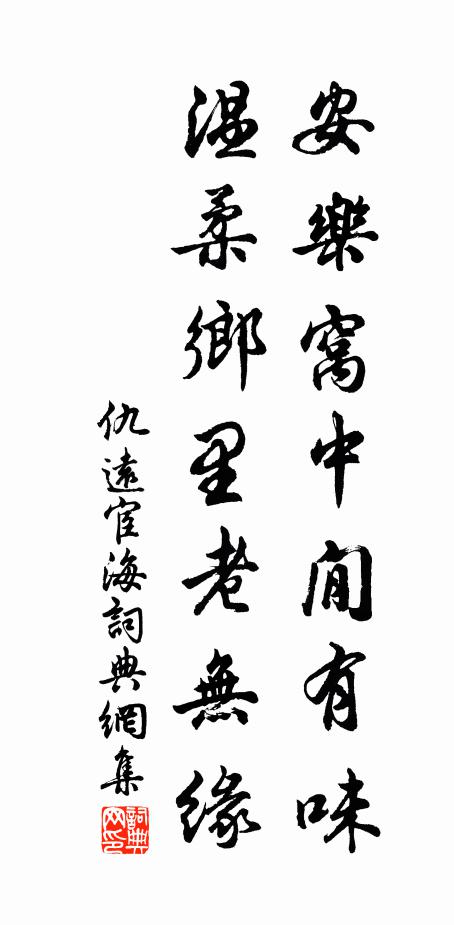 安樂窩中閒有味
溫柔鄉里老無緣
仇遠宦海詞典網集
詞典网印